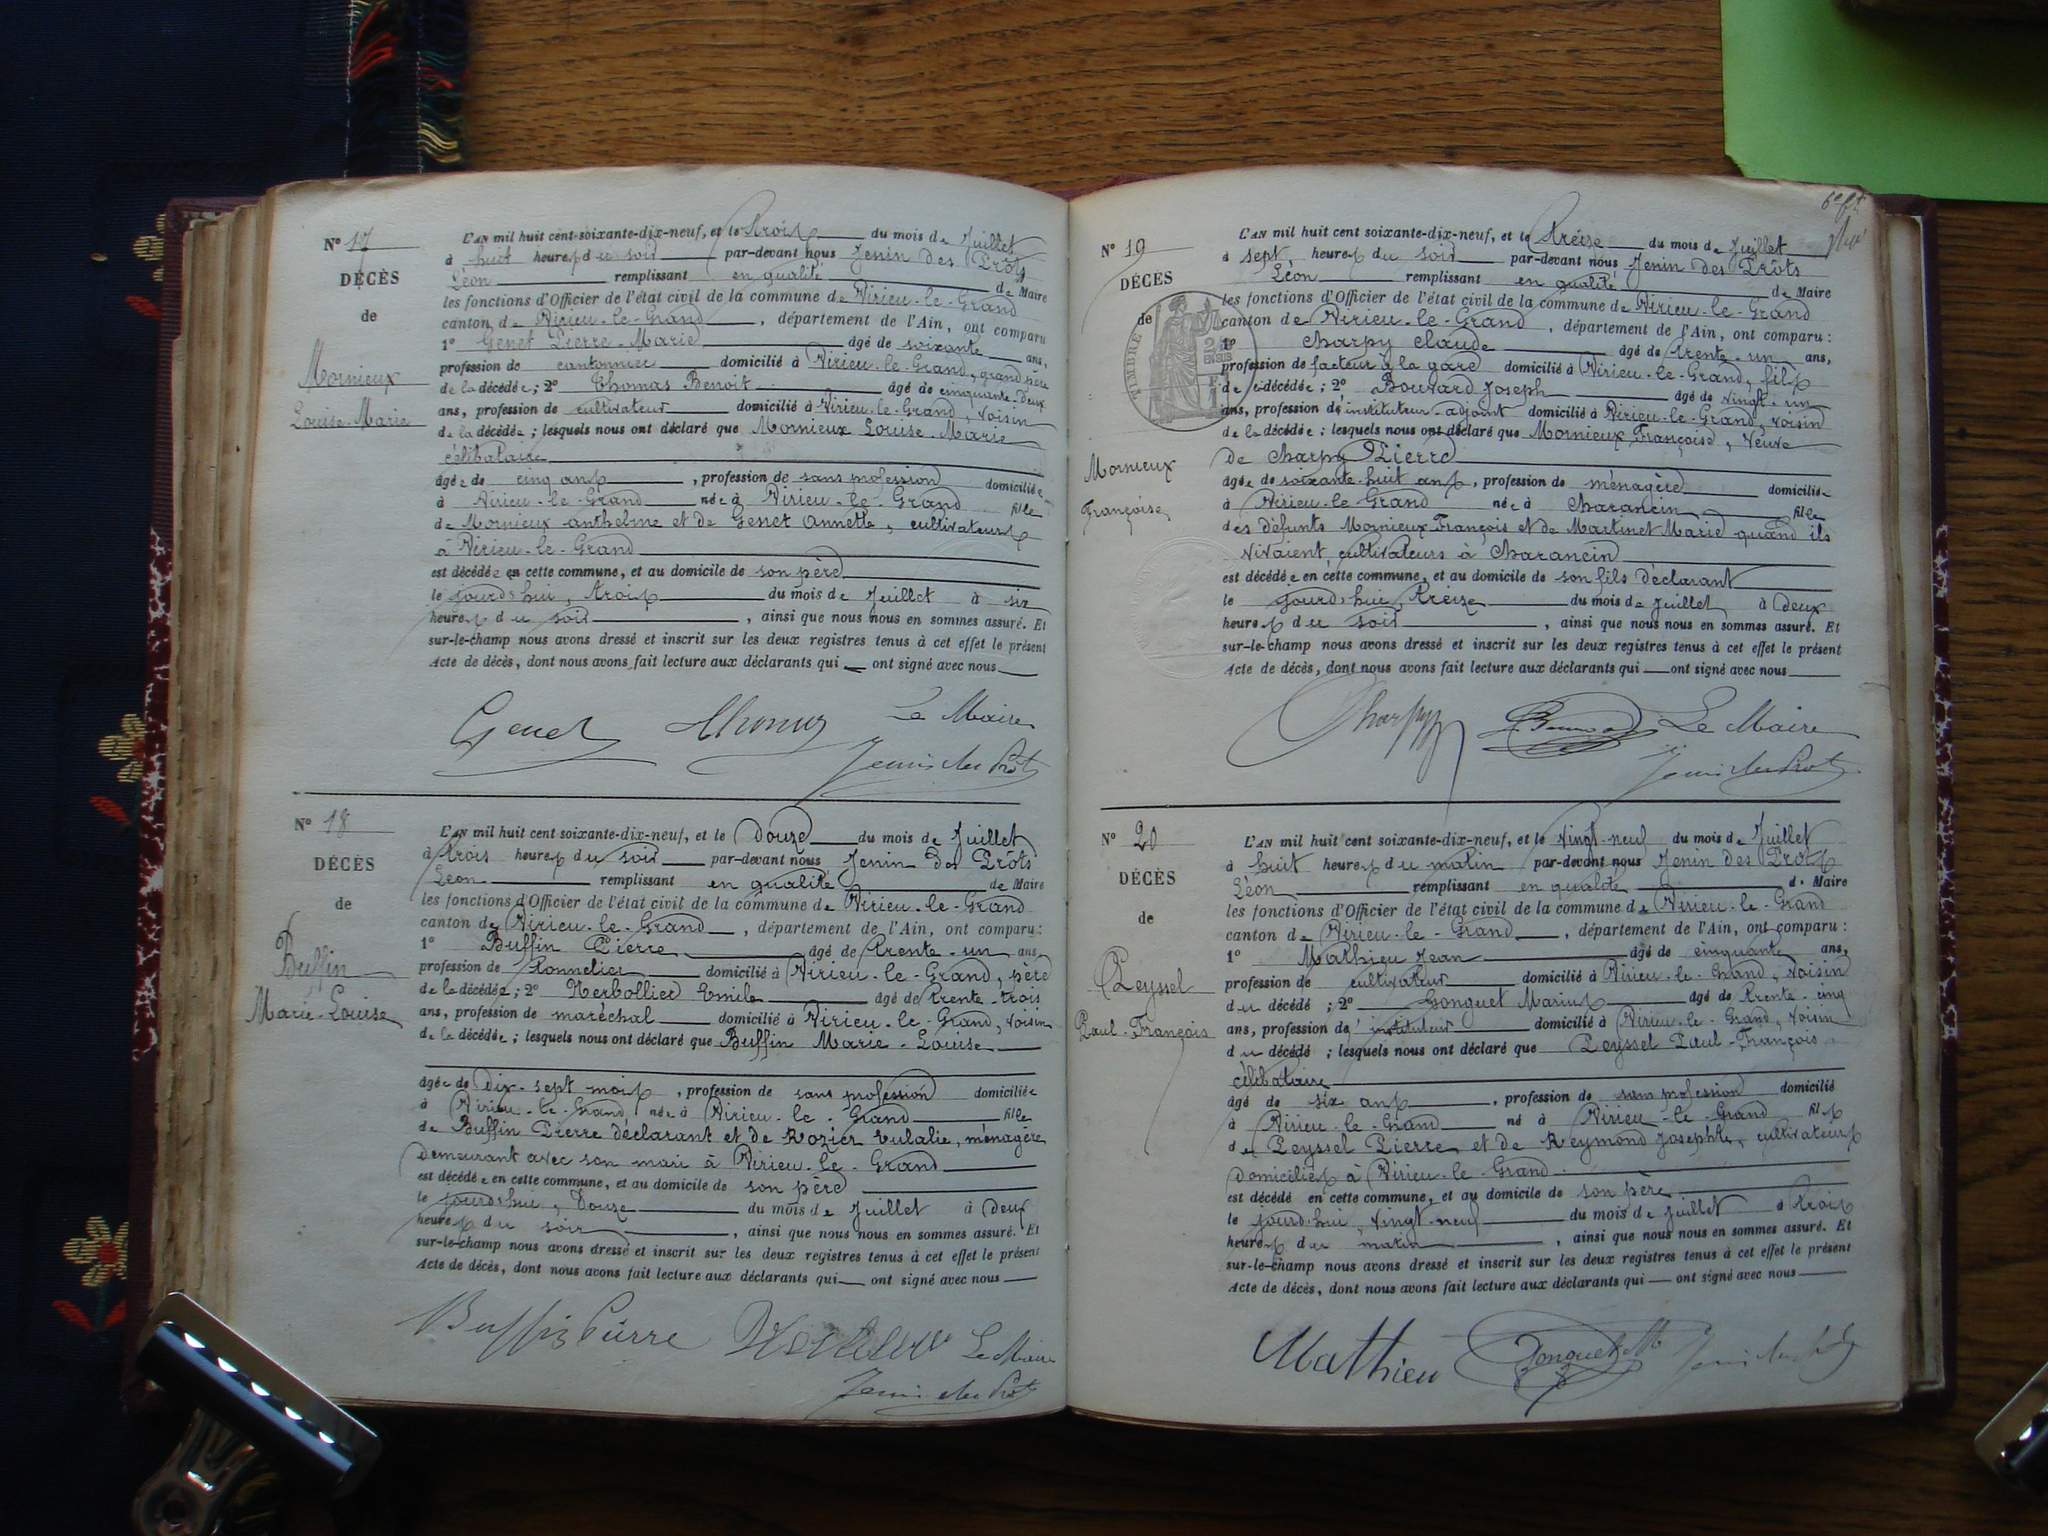 N° 17
DÉCÈS
de
Mornieux
Louise-Marie
L'AN mil huit cent soixante-dix-neuf, et le trois du mois de Juillet
à huit heures du soir par-devant nous Jenin des Prôts
Léon remplissant en qualité de Maire
les fonctions d'Officier de l'état civil de la commune de Virieu-le-Grand
canton de Virieu-le-Grand, département de l'Ain, ont comparu
1° Genet Pierre-Marie âgé de soixante ans,
profession de cantonnier domicilié à Virieu-le-Grand, grand père
de la décédée; 2° Thomas Benoit âgé de cinquante-deux
ans, profession de cultivateur domicilié à Virieu-le-Grand, voisin
de la décédée; lesquels nous ont déclaré que Mornieux Louise-Marie
célibataire
âgée de cinq ans, profession de sans profession domiciliée
à Virieu-le-Grand née à Virieu-le-Grand fille
de Mornieux anthelme et de Genet Annette, cultivateurs
à Virieu-le-Grand
est décédée en cette commune, et au domicile de son père
le jourd'hui, trois du mois de Juillet à six
heures du soir, ainsi que nous nous en sommes assuré. Et
sur-le-champ nous avons dressé et inscrit sur les deux registres tenus à cet effet le présent
Acte de décès, dont nous avons fait lecture aux déclarants qui — ont signé avec nous
Genet Thomas Le Maire
Jenin des Prôts
N° 18
DÉCÈS
de
Buffin
Marie-Louise
L'AN mil huit cent soixante-dix-neuf, et le Douze du mois de Juillet
à trois heures du soir par-devant nous Jenin des Prôts
Léon remplissant en qualité de Maire
les fonctions d'Officier de l'état civil de la commune de Virieu-le-Grand
canton de Virieu-le-Grand, département de l'Ain, ont comparu:
1° Buffin Pierre âgé de trente-un ans,
profession de tonnelier domicilié à Virieu-le-Grand, père
de la décédée; 2° Herbollier Emile âgé de trente-trois
ans, profession de maréchal domicilié à Virieu-le-Grand, voisin
de la décédée; lesquels nous ont déclaré que Buffin Marie-Louise
âgée de Dix-sept mois, profession de sans profession domiciliée
à Virieu-le-Grand née à Virieu-le-Grand fille
de Buffin Pierre déclarant et de Rozier Eulalie, ménagère
demeurant avec son mari à Virieu-le-Grand
est décédée en cette commune, et au domicile de son père
le jourd'hui, Douze du mois de Juillet à deux
heures du soir, ainsi que nous nous en sommes assuré. Et
sur-le-champ nous avons dressé et inscrit sur les deux registres tenus à cet effet le présent
Acte de décès, dont nous avons fait lecture aux déclarants qui — ont signé avec nous
Buffin Pierre Le Maire
Jenin des Prôts
N° 19
DÉCÈS
de
TIMBRE
Mornieux
Françoise
L'AN mil huit cent soixante-dix-neuf, et le treize du mois de Juillet
à sept heures du soir par-devant nous Jenin des Prôts
Léon remplissant en qualité de Maire
les fonctions d'Officier de l'état civil de la commune de Virieu-le-Grand
canton de Virieu-le-Grand, département de l'Ain, ont comparu:
1° Charpy Claude âgé de trente-un ans,
profession de facteur à la gare domicilié à Virieu-le-Grand, fils
de la décédée; 2° Bouvard Joseph âgé de vingt-un
ans, profession d'instituteur-adjoint domicilié à Virieu-le-Grand, voisin
de la décédée; lesquels nous ont déclaré que Mornieux Françoise, veuve
de Charpy Pierre
âgée de soixante-huit ans, profession de ménagère domiciliée
à Virieu-le-Grand née à Charancin fille
des défunts Mornieux François et de Martinet Marie quand ils
vivaient cultivateurs à Charancin
est décédée en cette commune, et au domicile de son fils déclarant
le jourd'hui, treize du mois de Juillet à deux
heures du soir, ainsi que nous nous en sommes assuré. Et
sur-le-champ nous avons dressé et inscrit sur les deux registres tenus à cet effet le présent
Acte de décès, dont nous avons fait lecture aux déclarants qui — ont signé avec nous
Charpy Bouvard Le Maire
Jenin des Prôts
N° 20
DÉCÈS
de
Peyssel
Paul-François
L'AN mil huit cent soixante-dix-neuf, et le Vingt-neuf du mois de Juillet
à huit heures du matin par-devant nous Jenin des Prôts
Léon remplissant en qualité de Maire
les fonctions d'Officier de l'état civil de la commune de Virieu-le-Grand
canton de Virieu-le-Grand, département de l'Ain, ont comparu:
1° Mathieu Jean âgé de cinquante ans,
profession de cultivateur domicilié à Virieu-le-Grand, voisin
du décédé; 2° Gonguet Marius âgé de trente-cinq
ans, profession d'instituteur domicilié à Virieu-le-Grand, voisin
du décédé; lesquels nous ont déclaré que Peyssel Paul-François
célibataire
âgé de six ans, profession de sans profession domicilié
à Virieu-le-Grand né à Virieu-le-Grand fils
de Peyssel Pierre et de Reymond Josephte, cultivateurs
domiciliés à Virieu-le-Grand
est décédé en cette commune, et au domicile de son père
le jourd'hui, vingt-neuf du mois de Juillet à trois
heures du matin, ainsi que nous nous en sommes assuré. Et
sur-le-champ nous avons dressé et inscrit sur les deux registres tenus à cet effet le présent
Acte de décès, dont nous avons fait lecture aux déclarants qui — ont signé avec nous
Mathieu Gonguet Jenin des Prôts